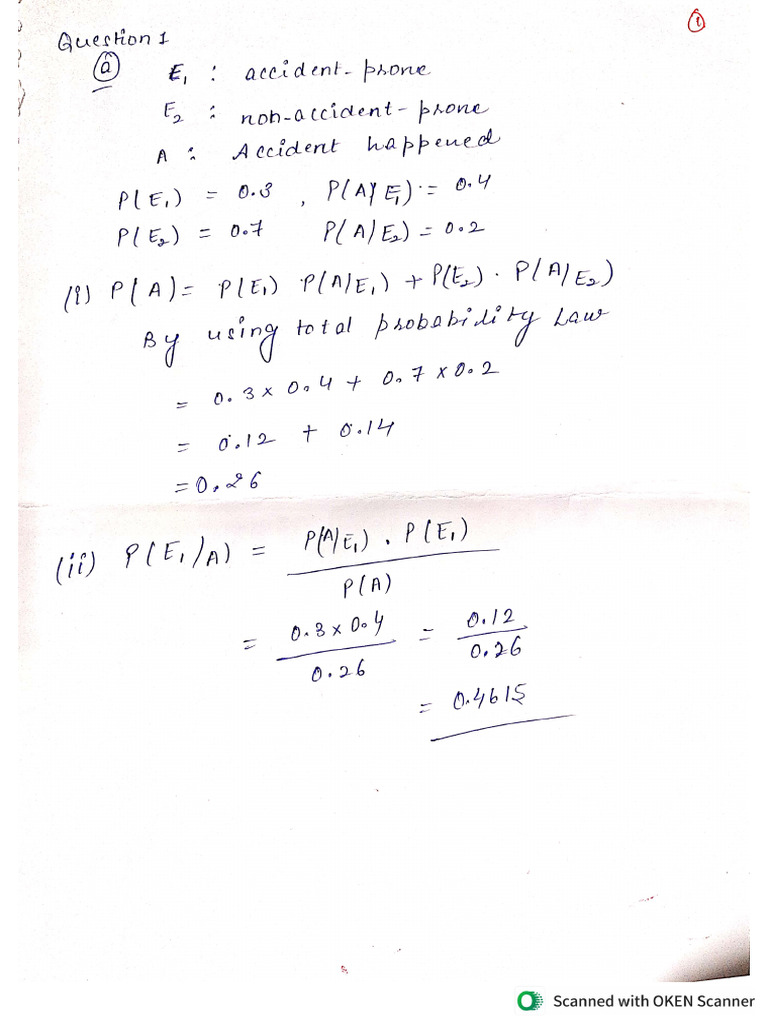 1
Question 1
a E₁ : accident-prone
E₂ : non-accident-prone
A : Accident happened
P(E₁) = 0.3 , P(A/E₁) = 0.4
P(E₂) = 0.7 P(A/E₂) = 0.2
(i) P(A) = P(E₁) P(A/E₁) + P(E₂) . P(A/E₂)
By using total probability Law
= 0.3 x 0.4 + 0.7 x 0.2
= 0.12 + 0.14
= 0.26
(ii) P(E₁/A) = P(A/E₁) . P(E₁)
P(A)
= 0.3 x 0.4 = 0.12
0.26 0.26
= 0.4615
Scanned with OKEN Scanner